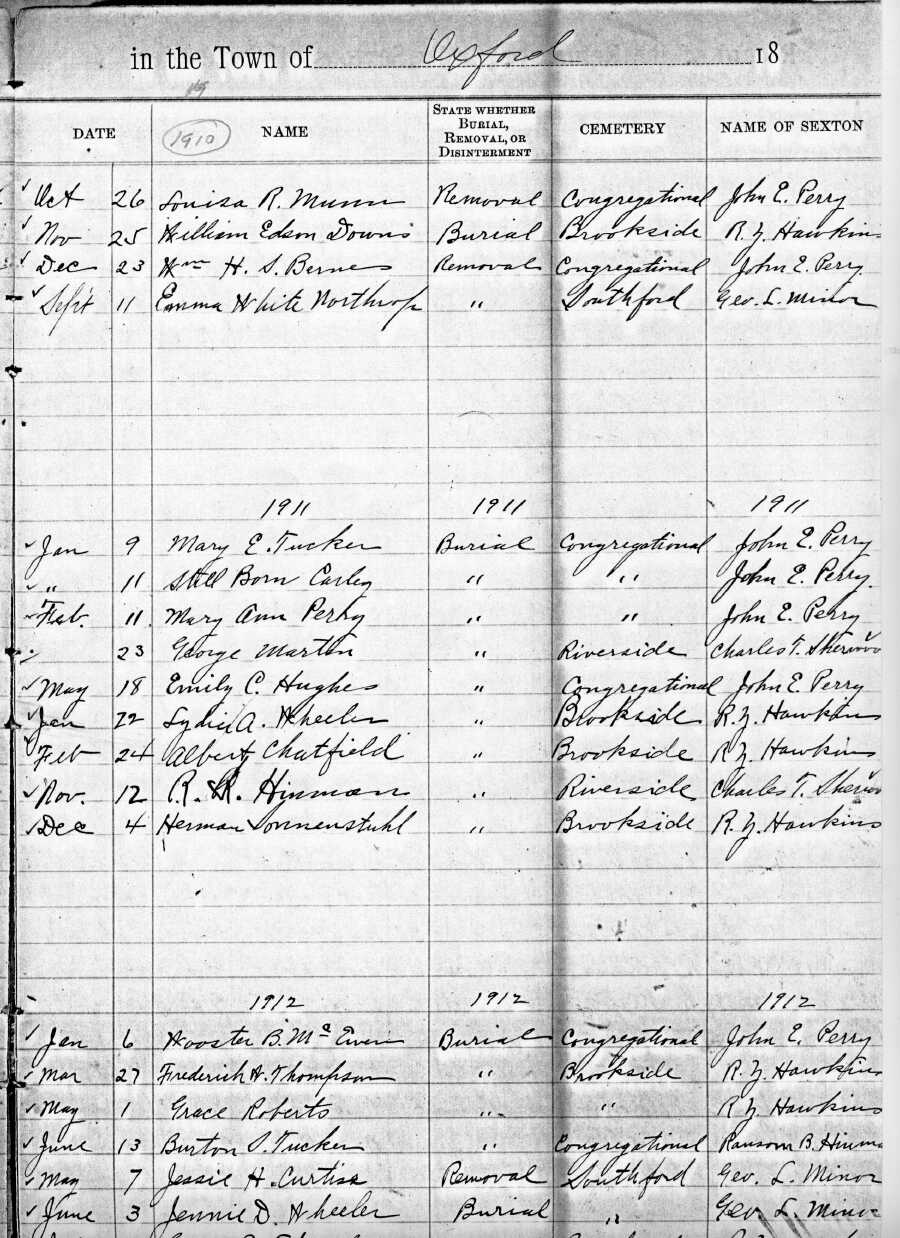 in the Town of Oxford 18
DATE 1910 NAME STATE WHETHER BURIAL, REMOVAL, OR DISINTERMENT CEMETERY NAME OF SEXTON
Oct 26 Louisa R. Munn Removal Congregational John E. Perry
Nov 25 William Edson Downs Burial Brookside R. Y. Hawkins
Dec 23 Wm H. S. Barnes Removal Congregational John E. Perry
Sept 11 Emma White Northrop " Southford Geo. L. Minor
1911 1911 1911
Jan 9 Mary E. Tucker Burial Congregational John E. Perry
" 11 Still Born Carley " " John E. Perry.
Feb. 11 Mary Ann Perry " " John E. Perry
23 George Martin " Riverside Charles T. Sherwoo
May 18 Emily C. Hughes " Congregational John E. Perry
Jan 22 Lydia A. Wheeler " Brookside R. Y. Hawkins
Feb 24 Albert Chatfield " Brookside R. Y. Hawkins
Nov. 12 R. R. Hinman " Riverside Charles T. Sherwoo
Dec 4 Herman Sonnenstuhl " Brookside R. Y. Hawkins
1912 1912 1912
Jan 6 Wooster B. Mc Ewen Burial Congregational John E. Perry
Mar 27 Frederick A. Thompson " Brookside R. Y. Hawkins
May 1 Grace Roberts " " R. Y. Hawkins
June 13 Burton S. Tucker " Congregational Ransom B. Hinma
May 7 Jessie H. Curtiss Removal Southford Geo. L. Minor
June 3 Jennie D. Wheeler Burial " Geo. L. Minor